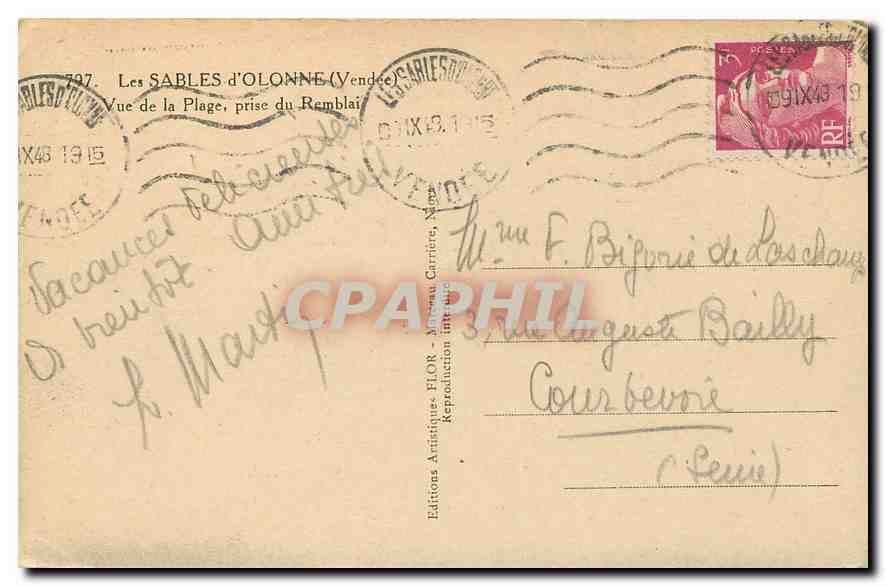 797. Les SABLES d'OLONNE (Vendée)
Vue de la Plage, prise du Remblai
LES SABLES D'OLONNE
09 IX 48. 19 15
VENDEE
3F
POSTES
RF
Vacances délicieuses
à bientôt. 
L. Martin
Editions Artistiques FLOR - Marceau Carrière,
Reproduction interdite
CPAPHIL
Mme F. Bigorie de Laschamps
3, rue Auguste Bailly
Courbevoie
(Seine)